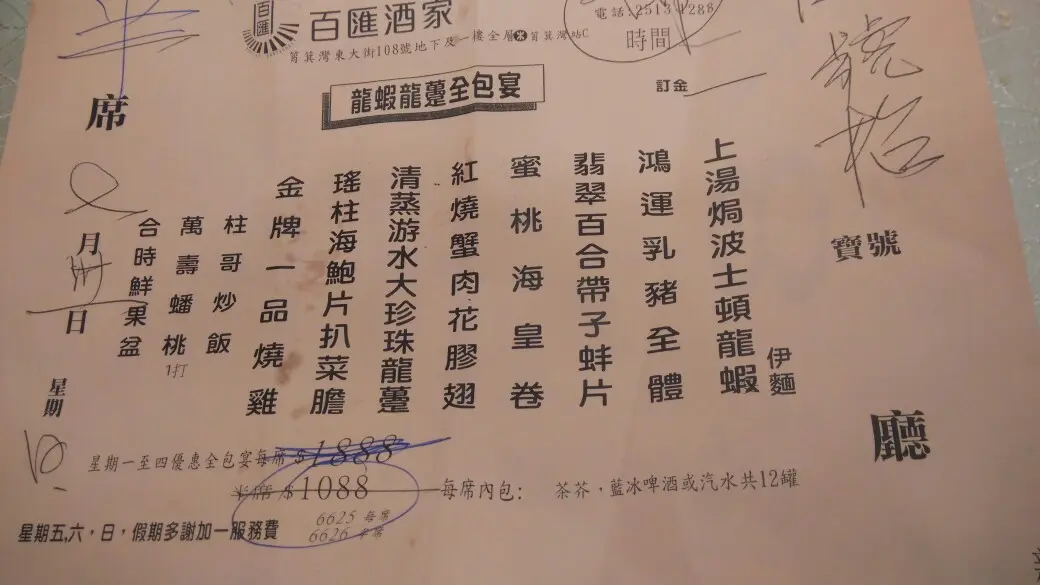 百匯
百匯酒家
筲箕灣東大街108號地下及一樓全層 筲箕灣站C
電話:2513 1288
時間
訂金
龍蝦龍躉全包宴
席
月
日
星期
寶號
廳
上湯焗波士頓龍蝦
伊麵
鴻運乳豬全體
翡翠百合帶子蚌片
蜜桃海皇卷
紅燒蟹肉花膠翅
清蒸游水大珍珠龍躉
瑤柱海鮑片扒菜膽
金牌一品燒雞
柱哥炒飯
萬壽蟠桃
1打
合時鮮果盆
星期一至四優惠全包宴每席 $1888
半席 $1088
每席內包: 茶芥,藍冰啤酒或汽水共12罐
6625 每席
6626 半席
星期五,六,日,假期多謝加一服務費